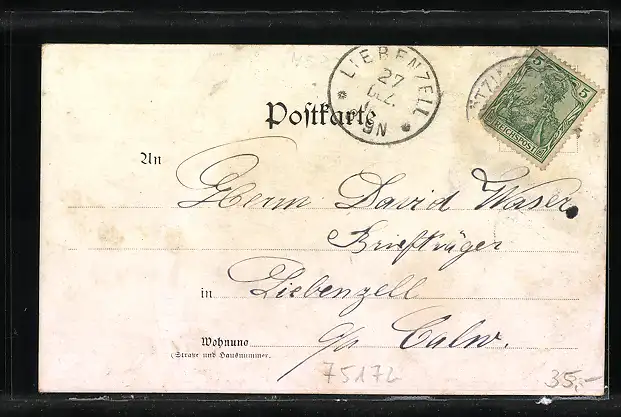 LIEBENZELL
27
DEZ.
5 5
REICHSPOST
Postkarte
An
Herrn David Waser
Briefträger
in Liebenzell
Wohnung
(Straße und Hausnummer)
Calw.
35,-